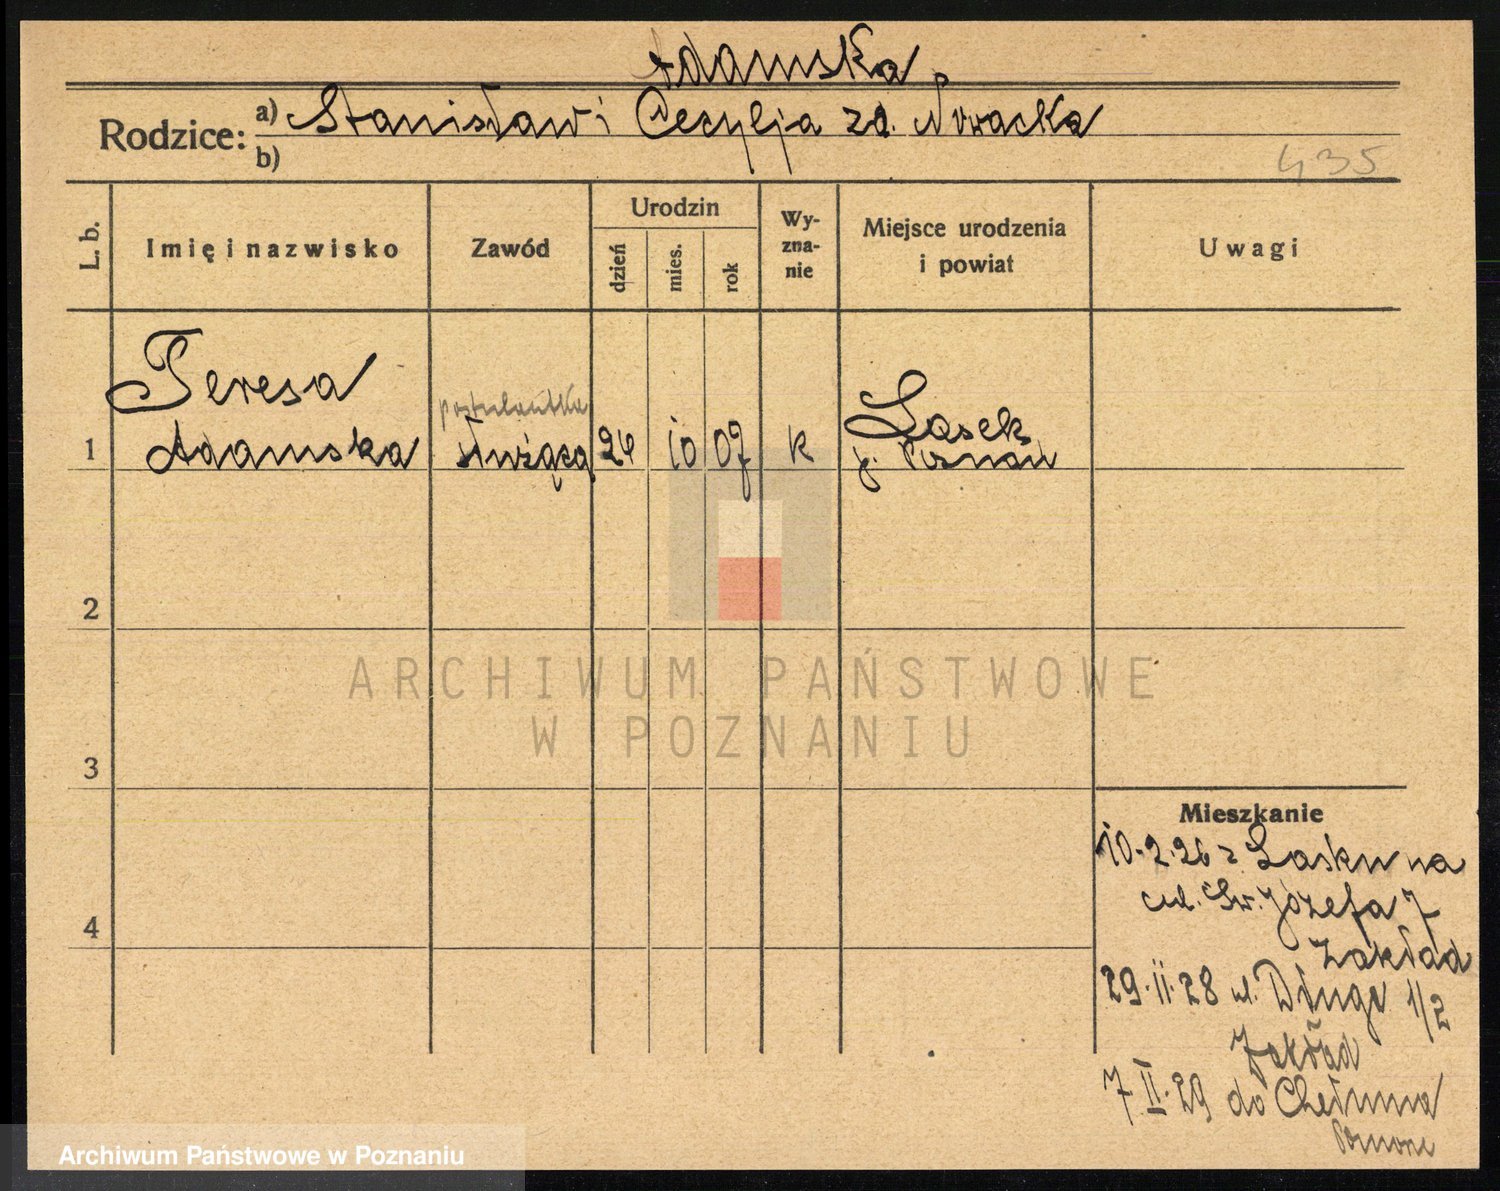 Adamska
Rodzice: a) Stanisław i Cecylja zd. Nowacka
b)
435
L. b.
Imię i nazwisko
Zawód
Urodzin
dzień
mies.
rok
Wy-
zna-
nie
Miejsce urodzenia
i powiat
Uwagi
Teresa
postulantka
Lasek
1 Adamska służąca 24 10 07 k p. Poznań
2
ARCHIWUM PAŃSTWOWE
W POZNANIU
3
Mieszkanie
10.2.26 z Lasku na
ul. Św. Józefa 7
Zakład
4
29.II.28 ul. Długa 1/2
Zakład
7.II.29 do Chełmna
Pomorze
Archiwum Państwowe w Poznaniu